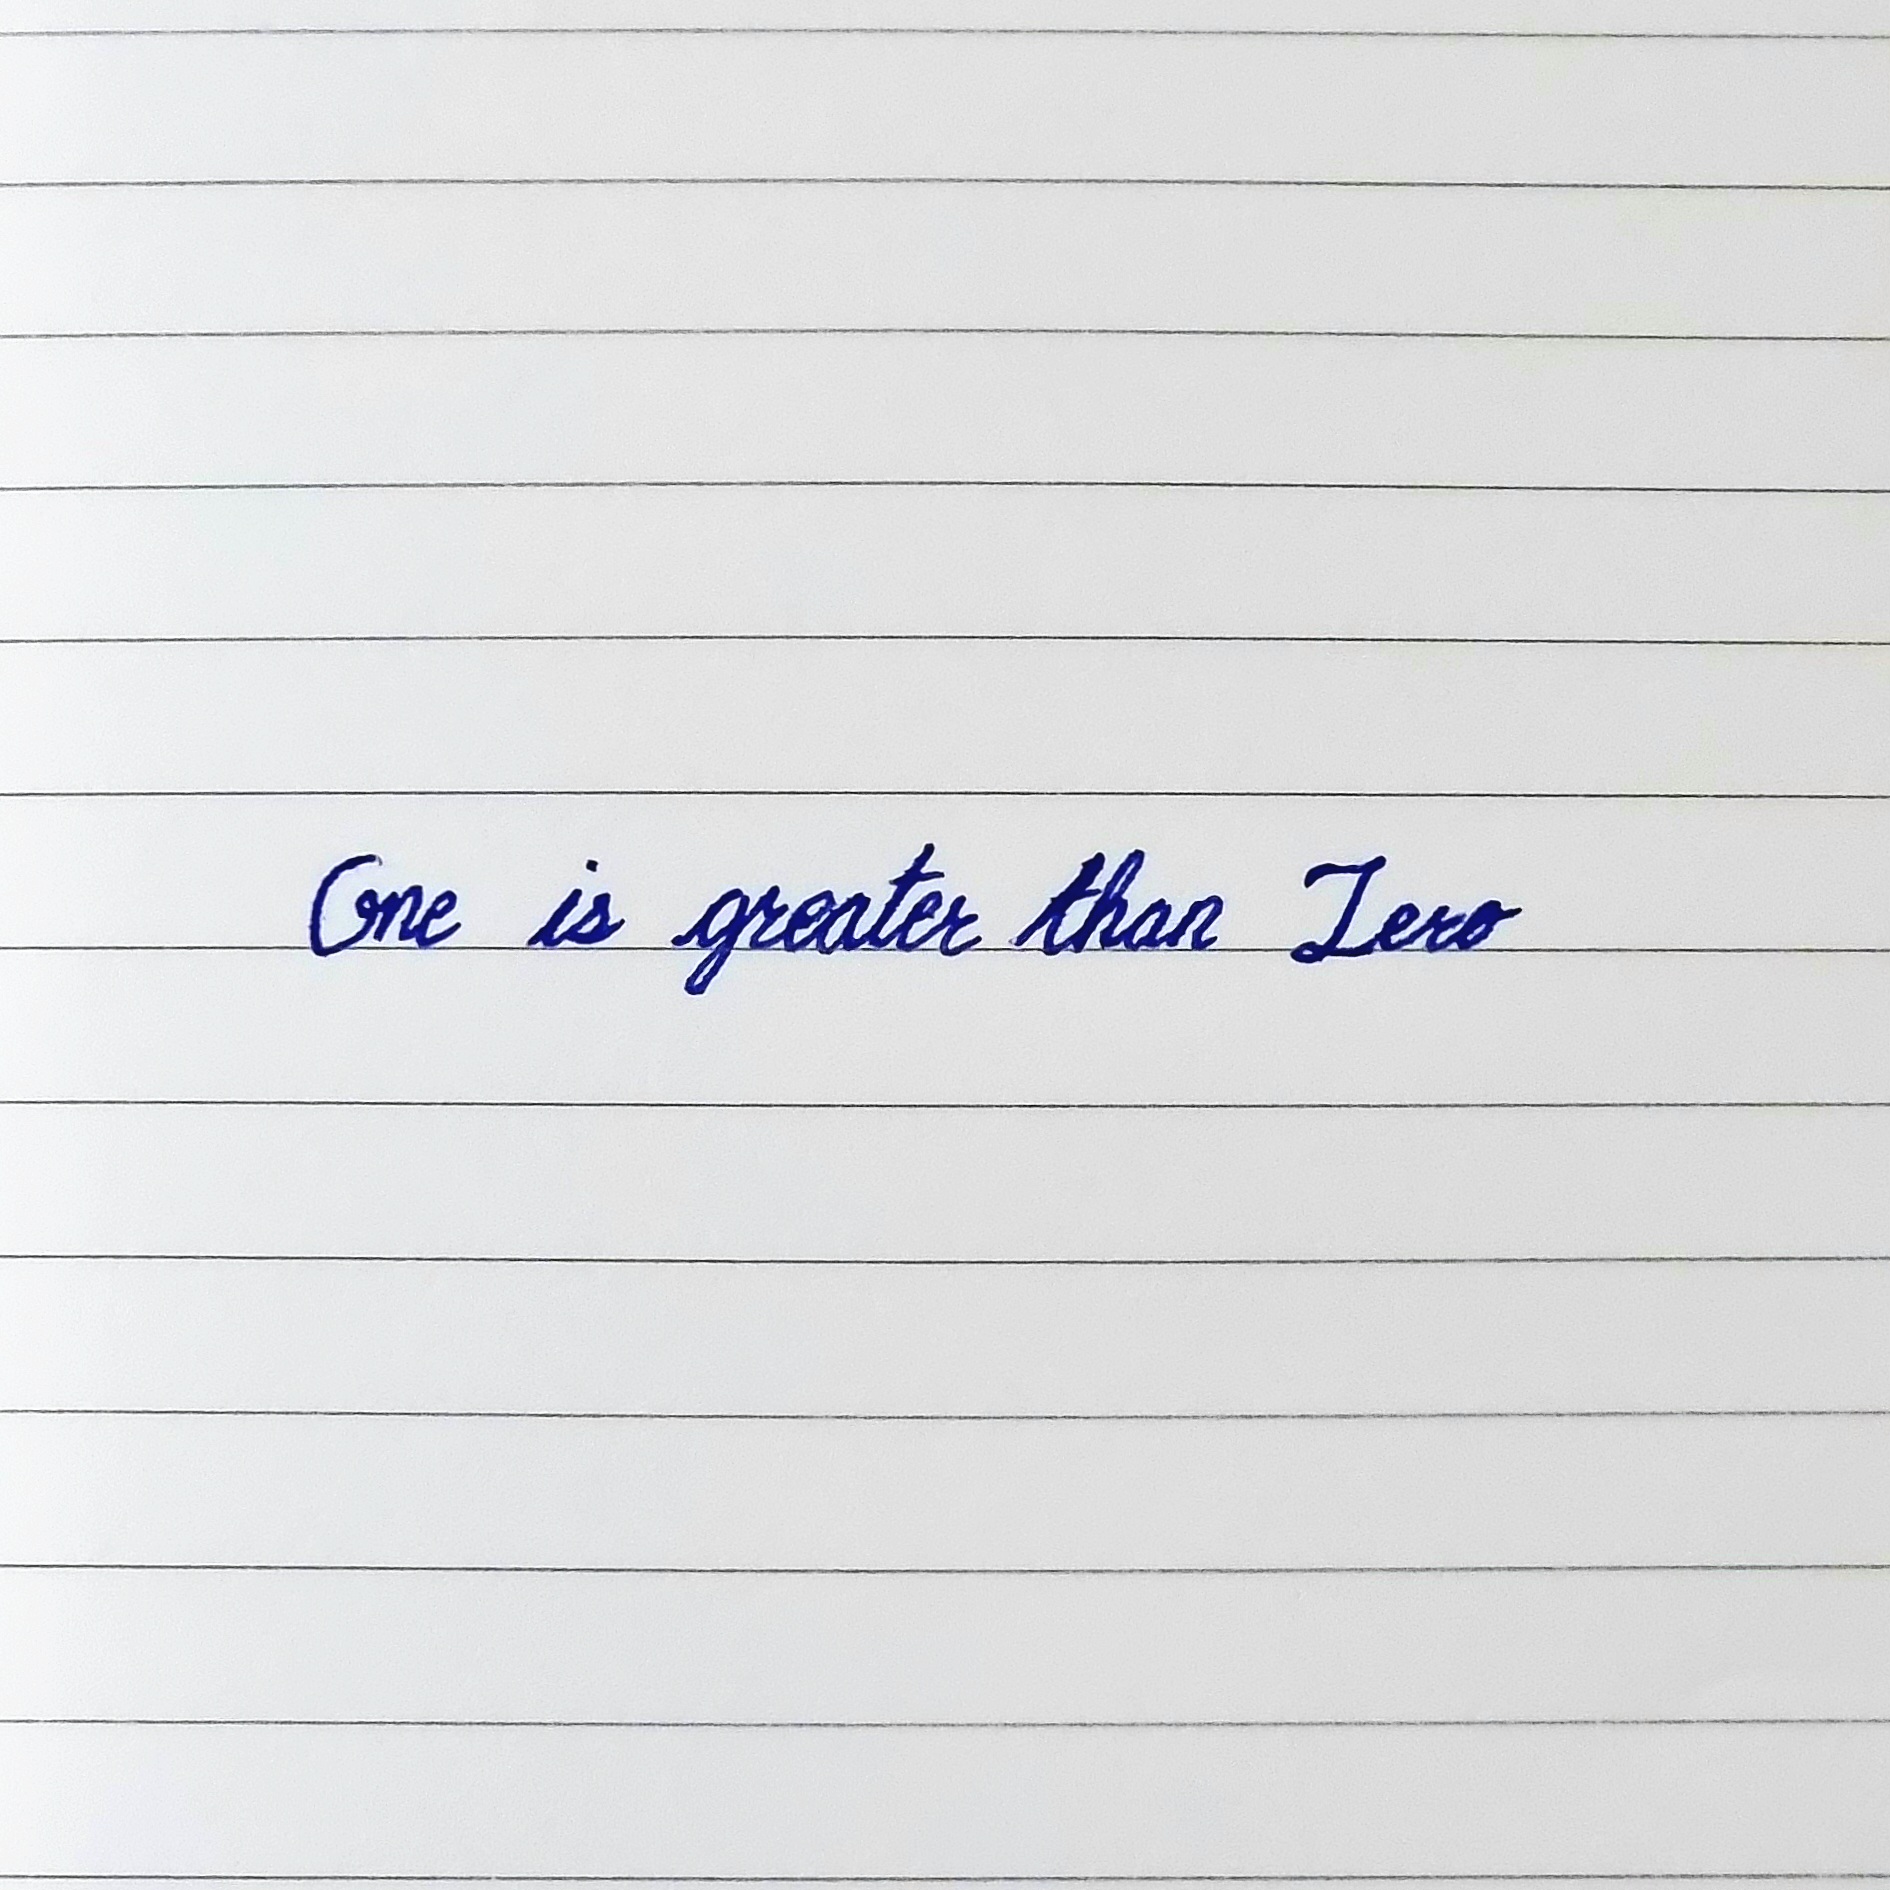 One is greater than Zero